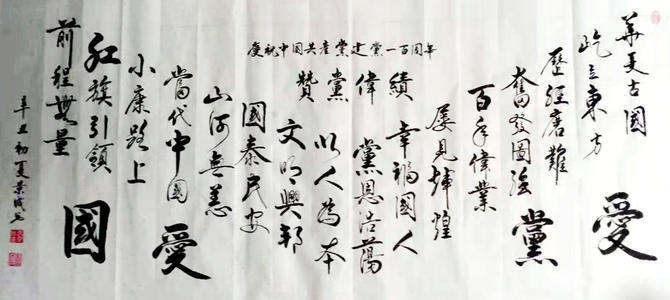 慶祝中国共產黨建黨一百周年
贊黨偉績
華夏古國
屹立東方
愛
歷經磨難
奮發圖強
黨
百年偉業
屢見輝煌
幸福國人
黨恩浩蕩
以人為本
文明興邦
國泰民安
山河無恙
當代中國
愛
小康路上
紅旗引領
前程無量
國
辛丑初夏